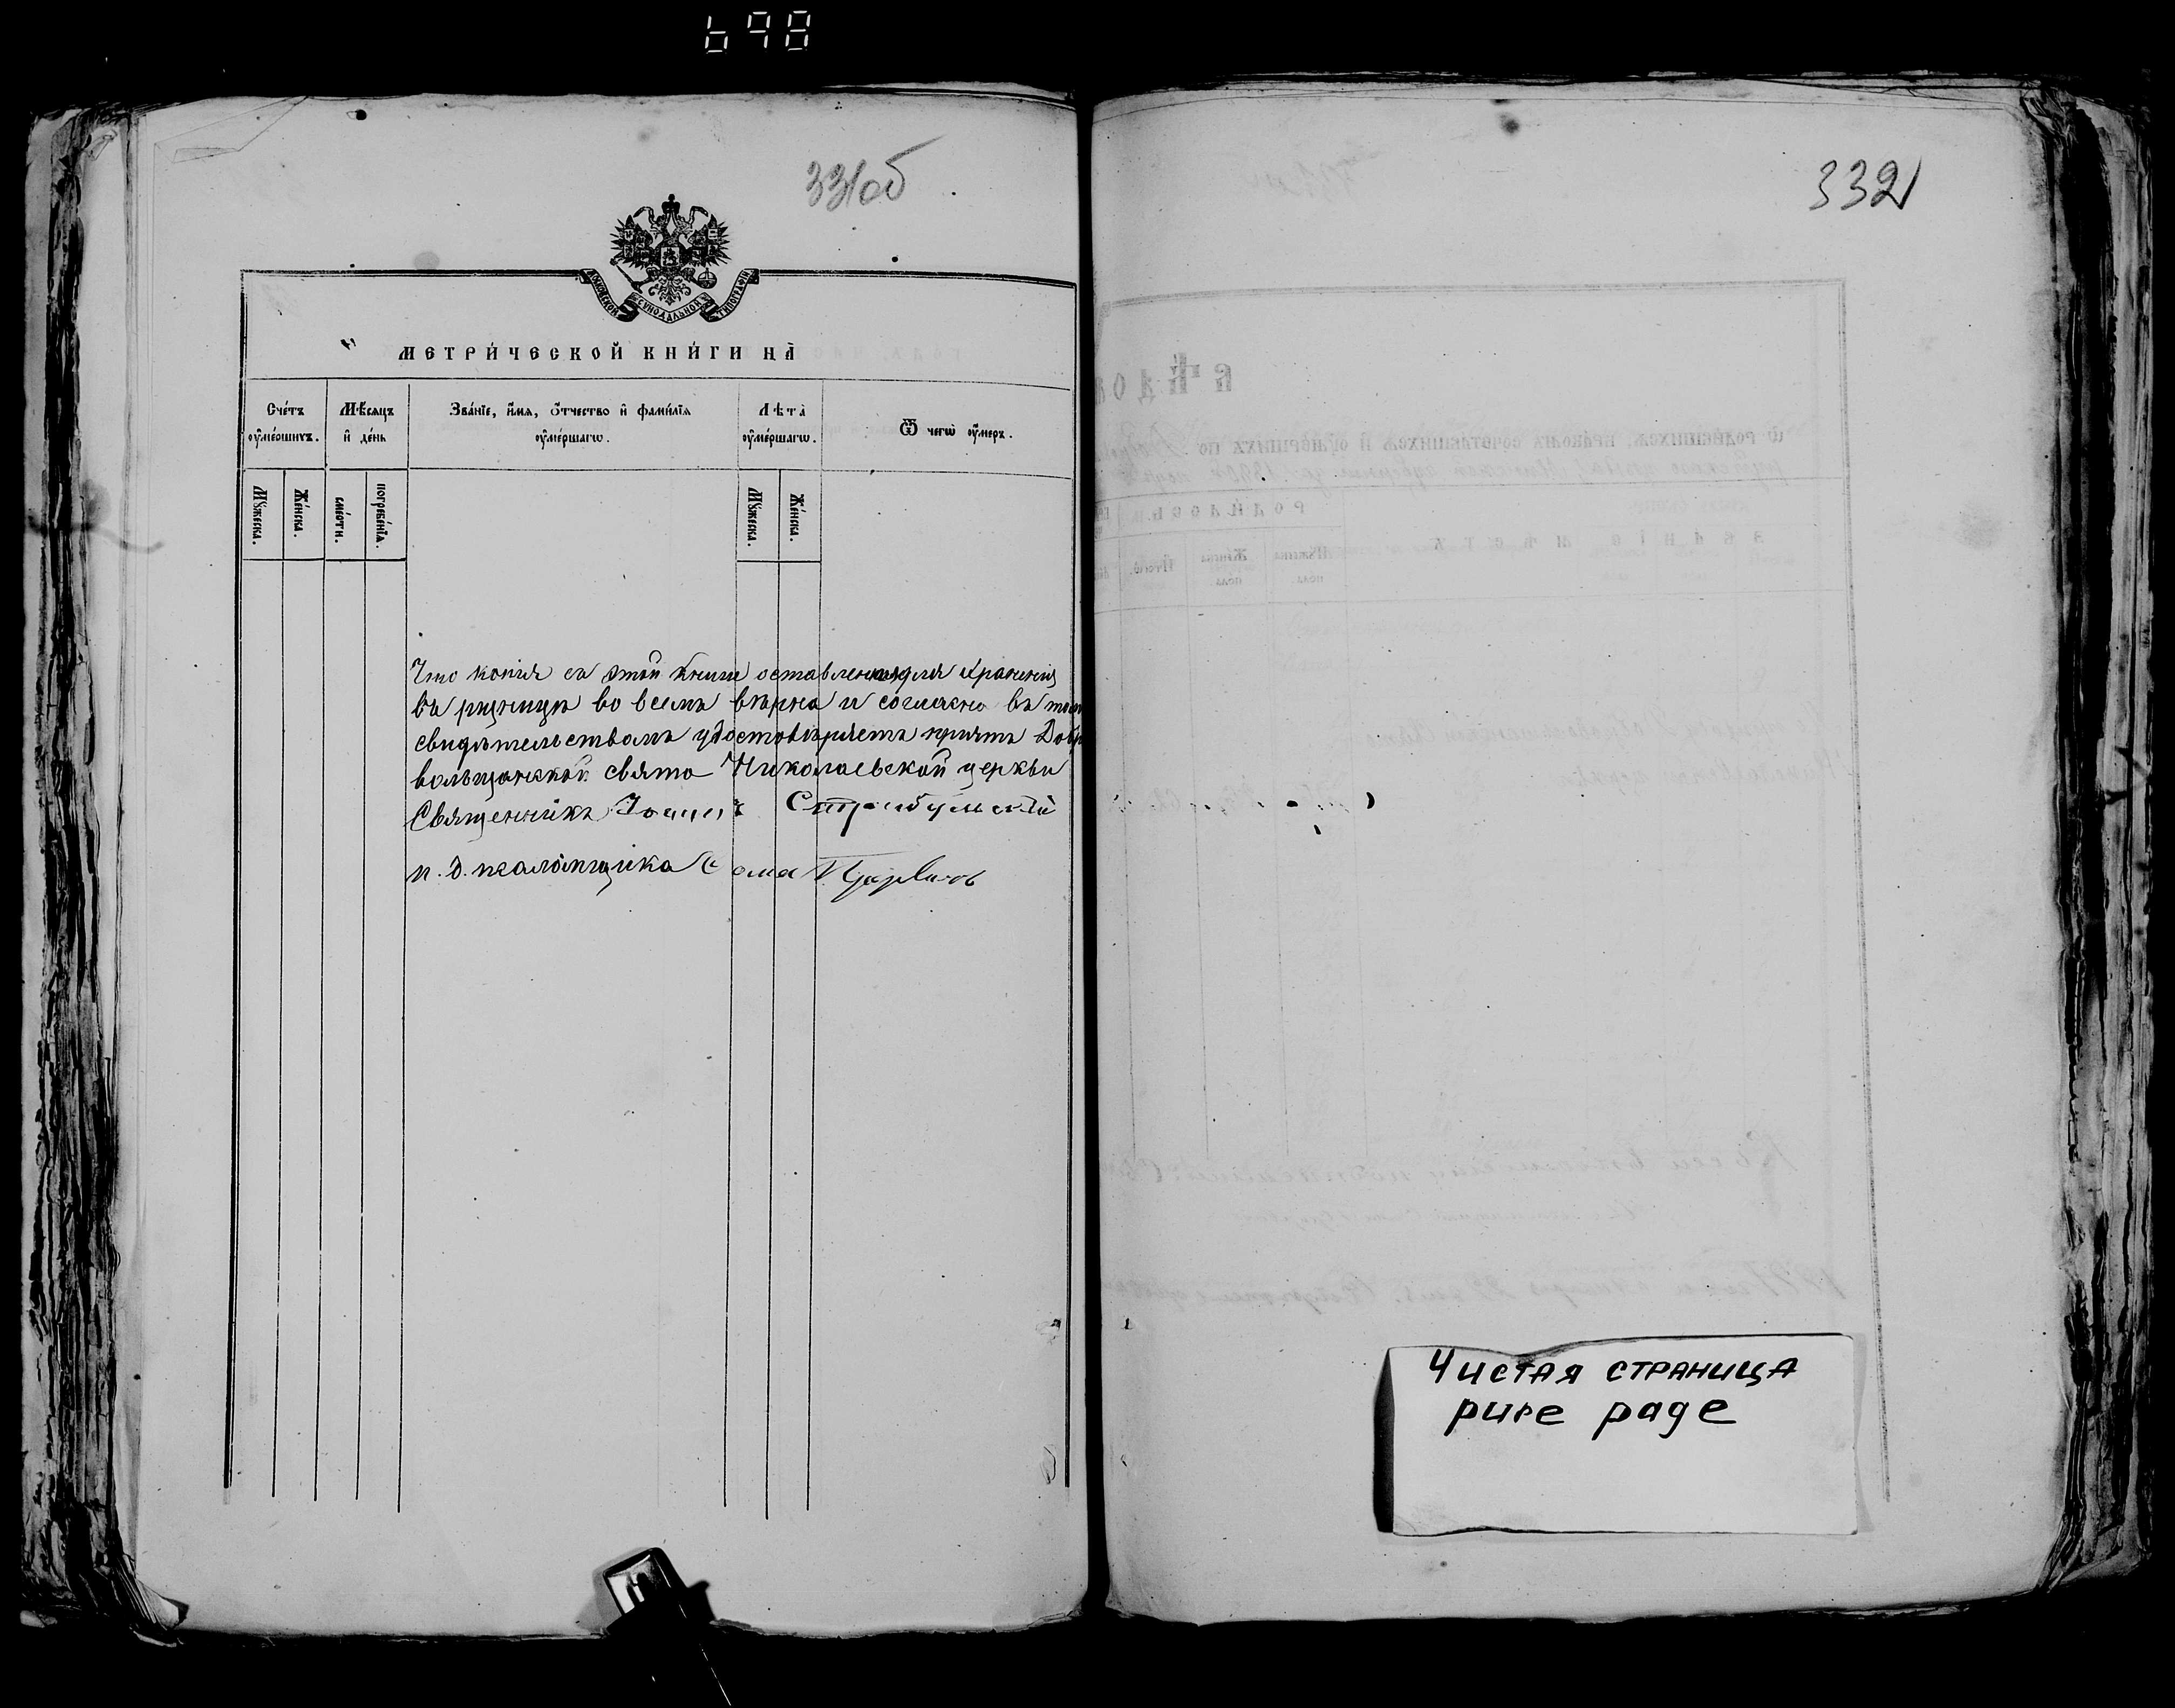 698
331об
МОСКОВСКОЙ СѴНОДАЛЬНОЙ ТИПОГРАФІИ
МЕТРИ́ЧЕСКОЙ КНИ́ГИ НА̀
Сче́тъ ᲂу҆ме́ршихъ.
Мѣ́сяцъ и҆ де́нь
Зва́нїе, и҆́мѧ, ѻ҆́тчество и҆ фами́лїѧ ᲂу҆ме́ршагѡ.
Лѣ́та ᲂу҆ме́ршагѡ.
Ѿ чегѡ̀ ᲂу҆́меръ.
Мꙋ́жеска.
Же́нска.
сме́рти.
погребе́нїѧ.
Мꙋ́жеска.
Же́нска.
Что копія съ этой книги оставленная для храненія
въ ризницѣ во всемъ вѣрна и согласна въ томъ
свидѣтельствомъ удостовѣряетъ причтъ Добро
вольщанской свято Николаевской церкви
Священникъ Іоаннъ Страбульскій
и. д. псаломщика Ѳома
332
Чистая страница
pure page